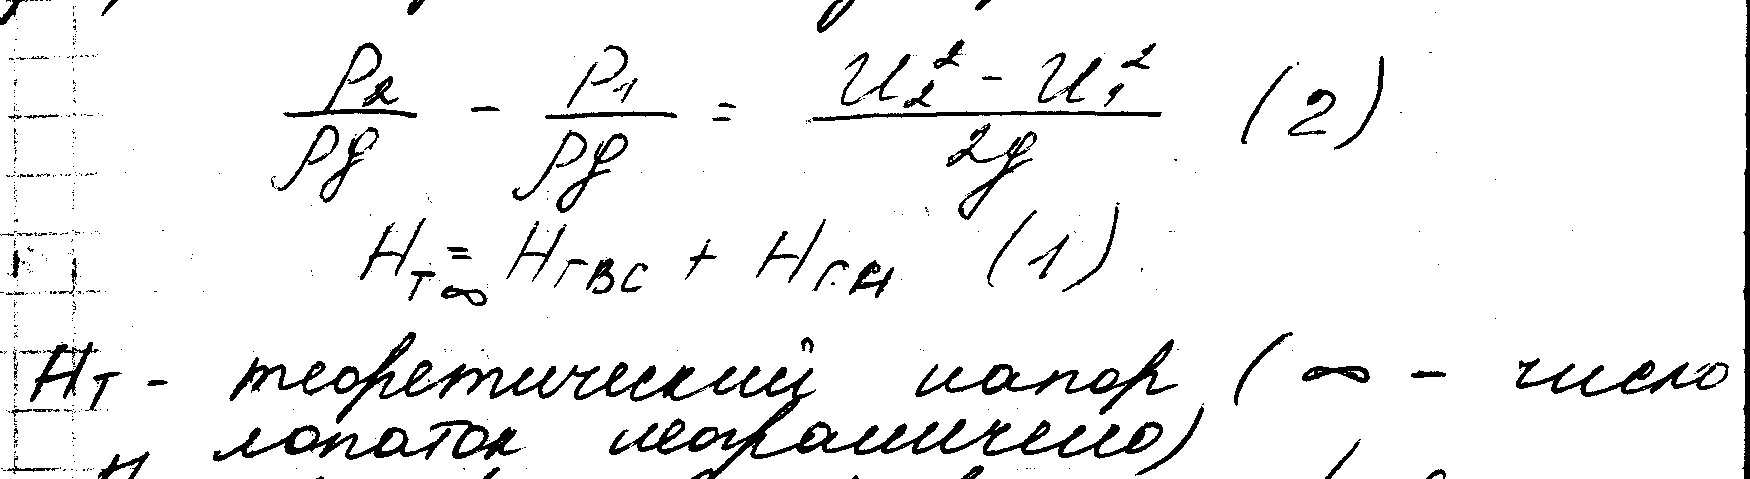 P₂/ρg - P₁/ρg = (U₂² - U₁²)/2g (2)
Hт∞ = Hгвс + Hгн (1)
Hт - теоретический напор (∞ - число
лопаток неограничено)